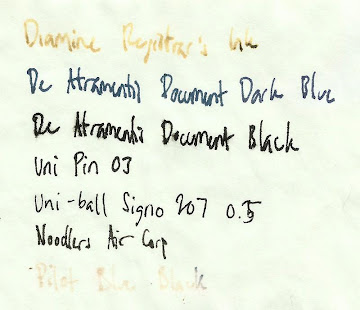 Diamine Registrar's Ink
De Atramentis Document Dark Blue
De Atramentis Document Black
Uni Pin 03
Uni-ball Signo 207 0.5
Noodlers Air Corp
Pilot Blue Black